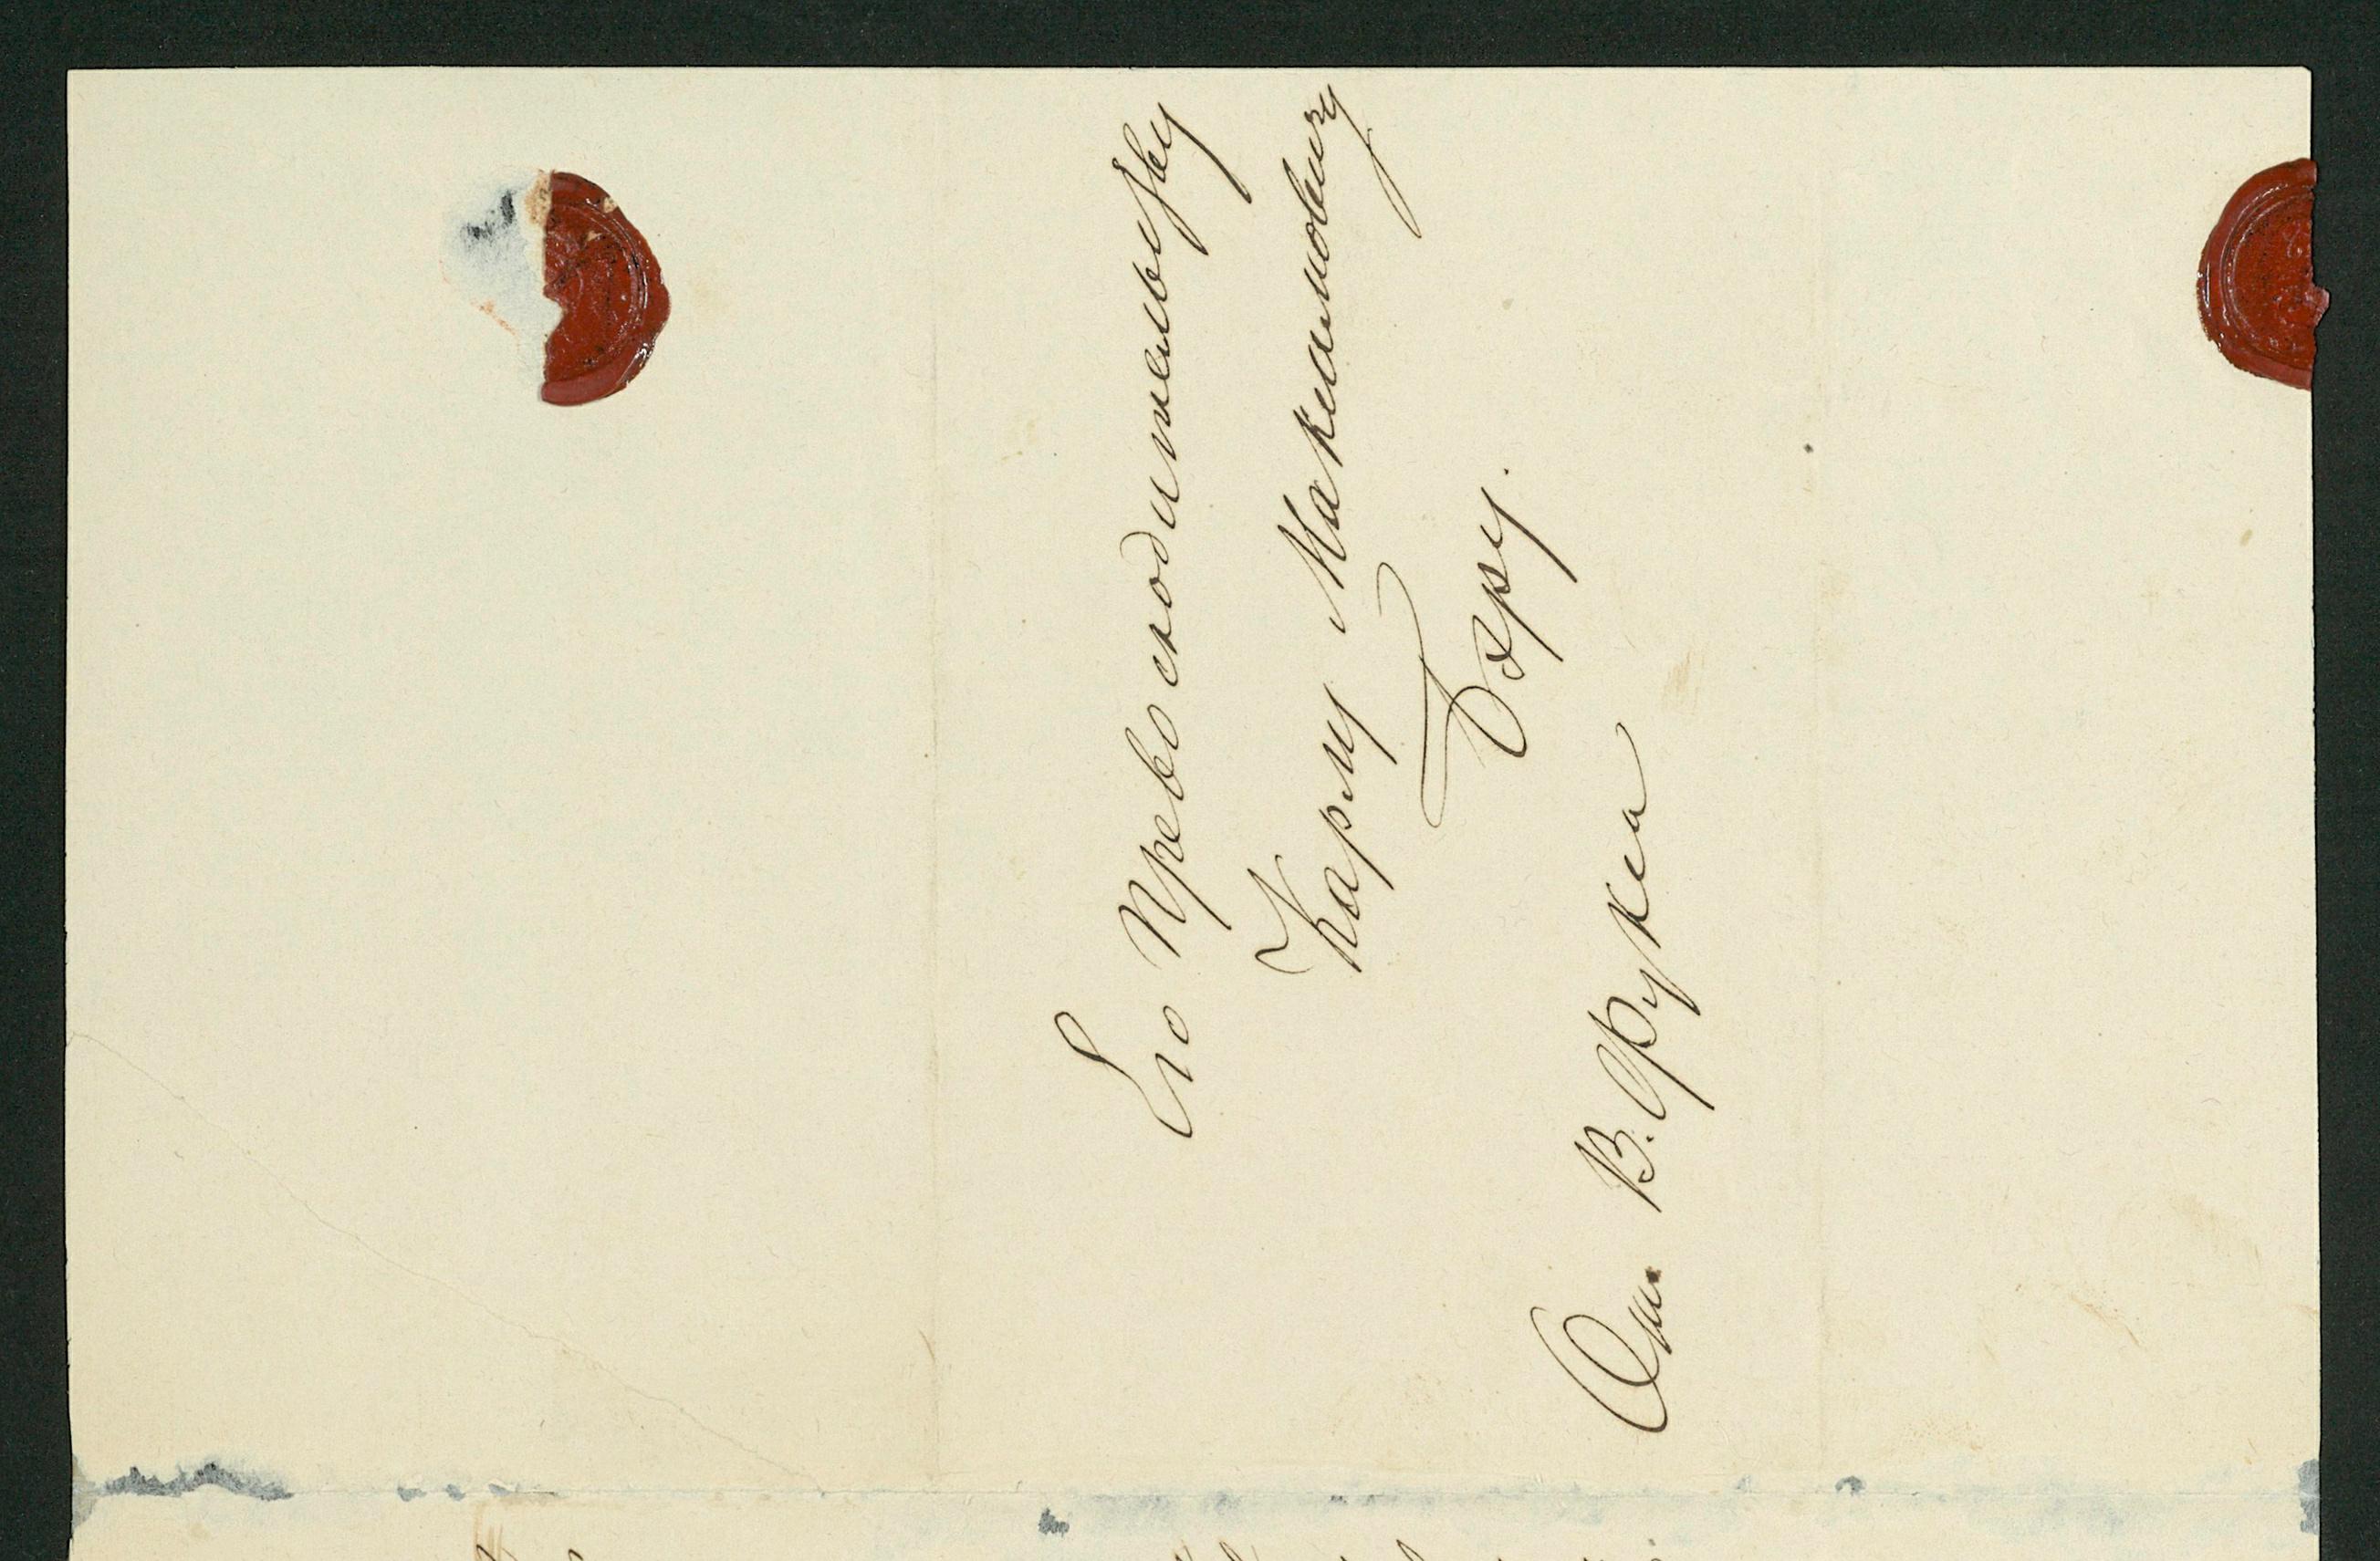 Его Превосходительству
Карлу Максимовичу
Бэру.
От В. Фукса